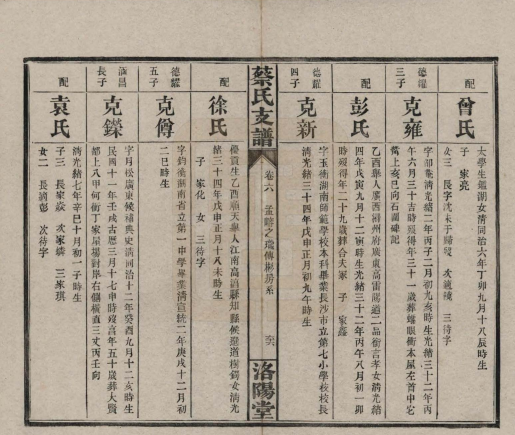 配
曾氏
太學生鑑湖女清同治六年丁卯九月十八辰時生
子 家亮
女 三 長字沈未于歸歿 次 三待字
德耀
三子
克雍
字邵 清光緒二年丙子二月初九亥時生光緒三十二年丙
午六月三十吉時歿得年三十一歲葬 本屋左首申它
萬上亥巳向石圍碑記
配
彭氏
乙酉舉人廣西潯州府 廣東高雷陽道二品銜言孝女清光緒
四年戊寅九月十二寅時生光緒三十二年丙午八月初一卯
時歿得年二十九歲葬合夫冢 子 家鑫
德耀
四子
克新
字玉衡湖南師範學校本科畢業長沙市立第七小學校校長
清光緒三十四年戊申正月初九午時生
蔡氏支譜
卷六 孟 之 傳 房系
洛陽堂
配
徐氏
優貢生乙酉順天舉人江南高 縣知縣候選道樹鍔女清光
緒三十四年戊申正月十八未時生
子 家化 女 三待字
德耀
五子
克僔
字鈞 湖南省立第一中學畢業清宣統二年庚戌十二月初
二巳時生
酒昌
長子
克鑅
字月松廣東候補典史清同治十二年癸酉九月十二亥時生
民國十一年壬戌古曆三月十七申時歿享年五十歲葬大賢
都上八甲何衝丁家屋場對岸右側橫直三丈丙壬向
配
袁氏
清光緒七年辛巳十月初一子時生
子 三 長家 次家 三家琪
女 二 長適彭 次待字